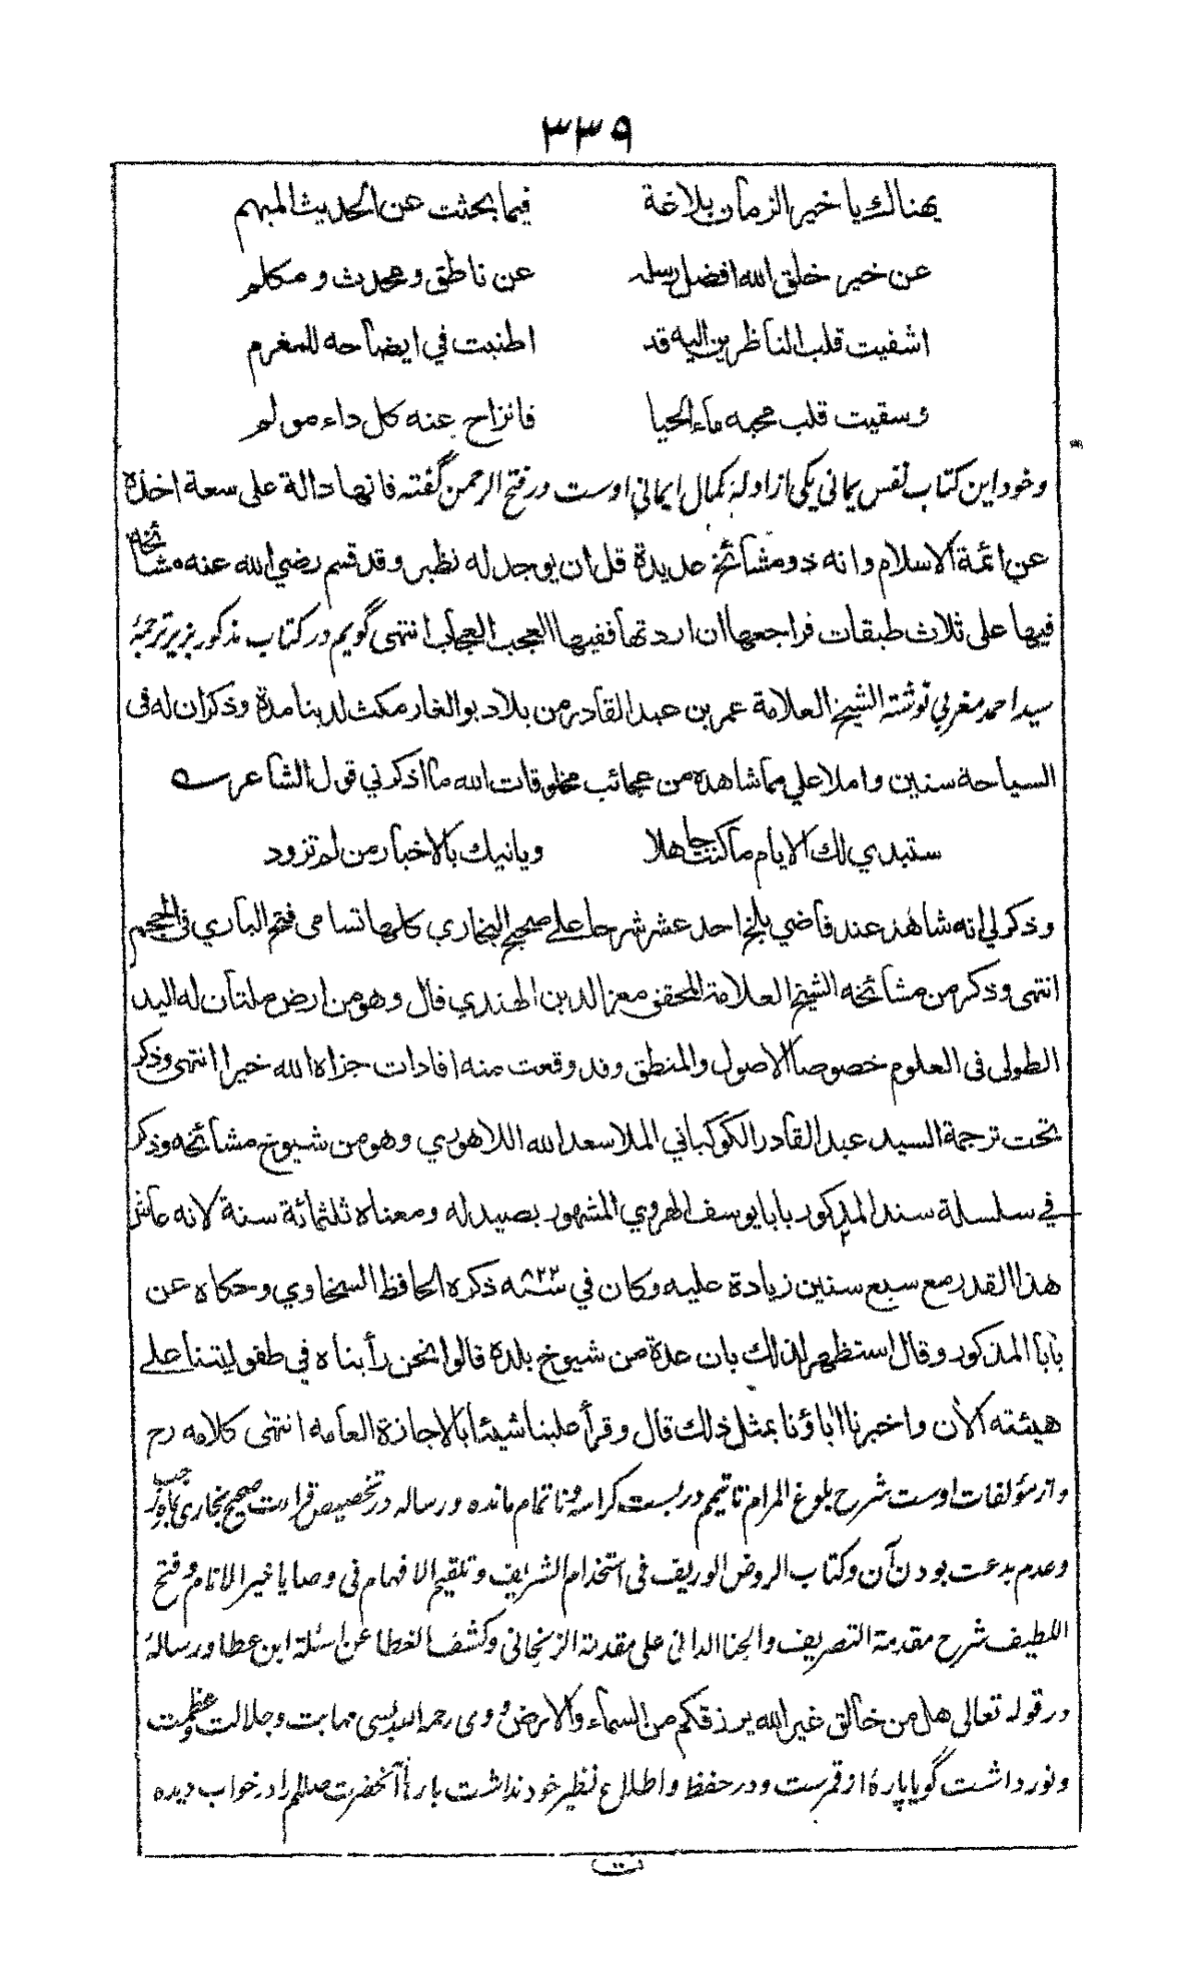 ٣٣٩
يهناك يا خير الزمان بلاغة فيما بحثت عن الحديث المبهم
عن خير خلق الله افضل رسله عن ناطق ومحدث ومكلم
اشفيت قلب الناظرين اليه قد اطنبت في ايضاحه للمغرم
وسقيت قلب محبه ماء الحيا فانزاح عنه كل داء مولم
وخود اين كتاب نفس يماني يكى از ادلهٔ كمال ايماني اوست ودر فتح الرحمن گفته فانها دالة على سعة اخذه
عن ائمة الاسلام وانه ذو مشائخ عديدة قل ان يوجد له نظير وقد قسم رضي الله عنه مشائخه
فيها على ثلاث طبقات فراجعها ان اردتها ففيها العجب العجاب انتهى گويم در كتاب مذكور بزير ترجمهٔ
سيد احمد مغربي نوشته الشيخ العلامة عمر بن عبد القادر من بلاد بو الغار مكث لدينا مدة وذكر ان له فى
السياحة سنين واملا علي مما شاهده من عجائب مخلوقات الله ما اذكرني قول الشاعر ؎
ستبدي لك الايام ما كنت جاهلا ويانيك بالاخبار من لم تزود
وذكر لي انه شاهد عند قاضي بلخ احد عشر شرحا على صحيح البخاري كلها تسامى فتح الباري فى الحجم
انتهى وذكر من مشائخه الشيخ العلامة المحقق معز الدين الهندي قال وهو من ارض ملتان له اليد
الطولى فى العلوم خصوصا الاصول والمنطق وقد وقعت منه افادات جزاه الله خيرا انتهى وذكر
تحت ترجمة السيد عبد القادر الكوكباني الملا سعد الله اللاهوري وهو من شيوخ مشائخه وذكر
في سلسلة سند المذكور بابا يوسف الهروي المشهور بصيد له ومعناه ثلثمائة سنة لانه عاش
هذا القدر مع سبع سنين زيادة عليه وكان في سنة ٨٢٢ ذكره الحافظ السخاوي وحكاه عن
بابا المذكور وقال استظهر لذلك بان عدة من شيوخ بلده قالوا نحن رأيناه في طفوليتنا على
هيئته الآن واخبرنا اباؤنا بمثل ذلك قال وقرأ علينا شيئا بالاجازة العامه انتهى كلامه رح
واز مؤلفات اوست شرح بلوغ المرام تا تيمم در بست كراسه ونا تمام مانده ورساله در تخصيص قراءت صحيح بخارى بماه رجب
وعدم بدعت بودن آن وكتاب الروض الوريف فى استخدام الشريف وتلقيح الافهام فى وصايا خير الانام وفتح
اللطيف شرح مقدمة التصريف والجنا الدانى على مقدمة الزنجانى وكشف الغطا عن اسئلة ابن عطا ورسالهٔ
در قوله تعالى هل من خالق غير الله يرزقكم من السماء والارض ووى رحمه الله بسى مهابت وجلالت وعظمت
ونور داشت گويا پارهٔ از قمرست ودر حفظ واطلاع نظير خود نداشت بارها آنحضرت صللم را در خواب ديده
ت